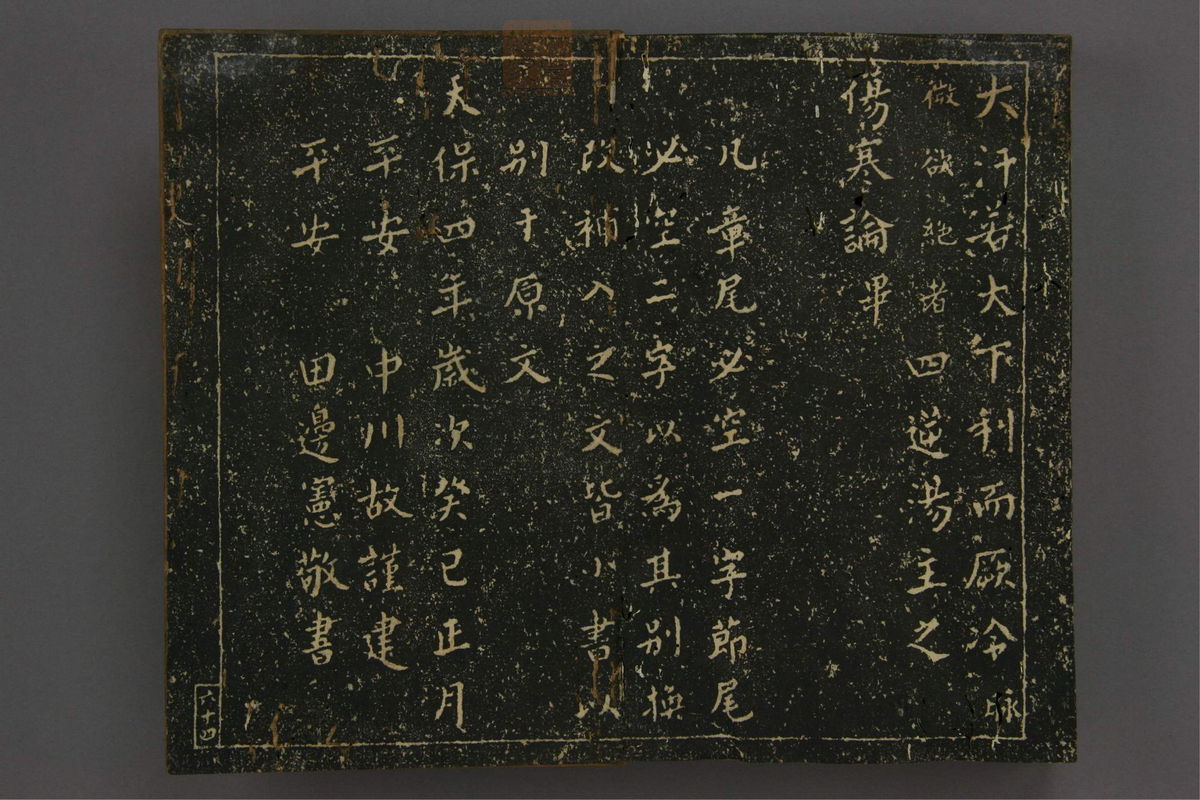 大汗若大下利而厥冷脉
微欲絶者四逆湯主之
傷寒論畢
凡章尾必空一字節尾
必空二字以爲其別換
改補入之文皆小書以
別于原文
天保四年歳次癸巳正月
平安　中川故謹建
平安　田邊憲敬書
六十四